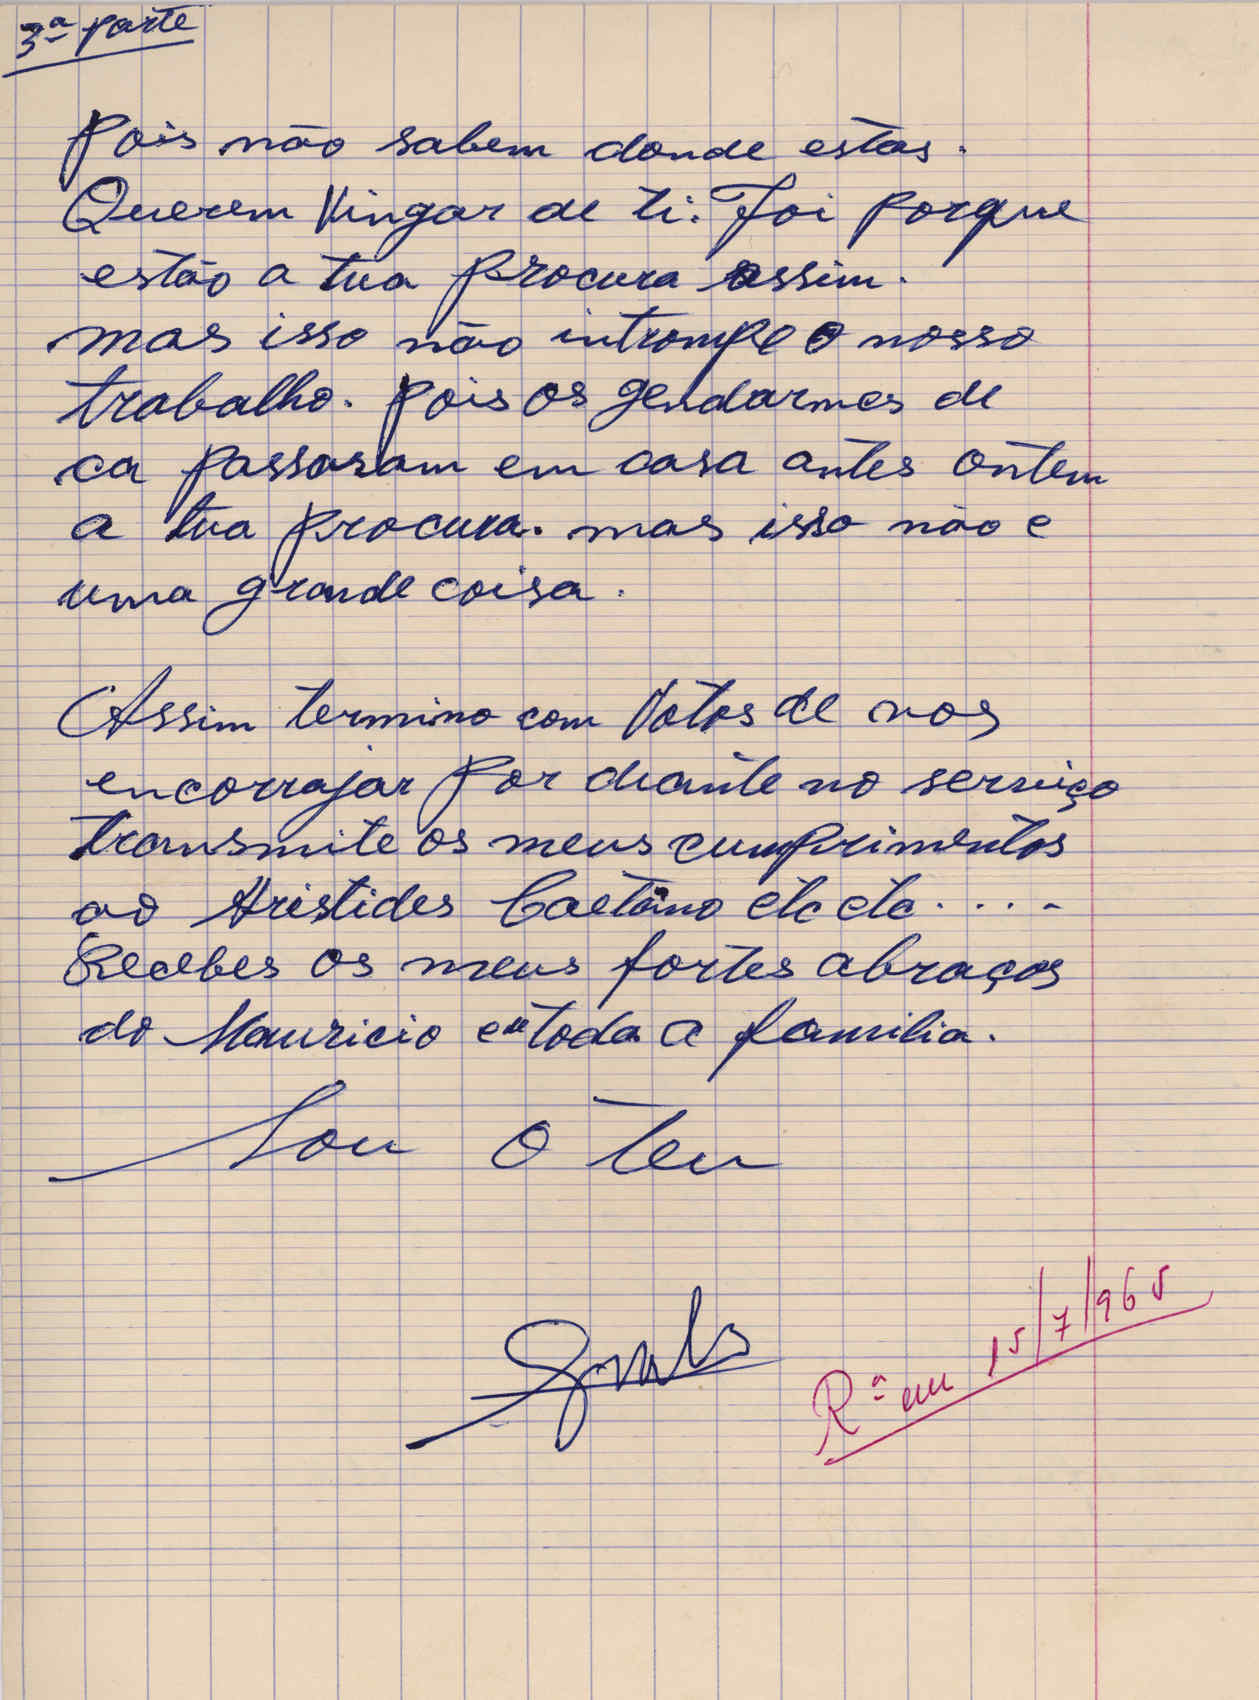 3ª parte
Pois não sabem donde estas.
Querem Vingar de ti. Foi porque
estão a tua procura assim.
mas isso não intrompe o nosso
trabalho. Pois os gendarmes de
ca passaram em casa antes ontem
a tua procura. mas isso não e
uma grande coisa.
Assim termino com Votos de nos
encorrajar por diante no serviço
transmite os meus cumprimentos
ao Aristides Caetano etc etc....
Recebes os meus fortes abraços
do Mauricio e toda a familia.
Sou O teu
Rª em 15/7/965